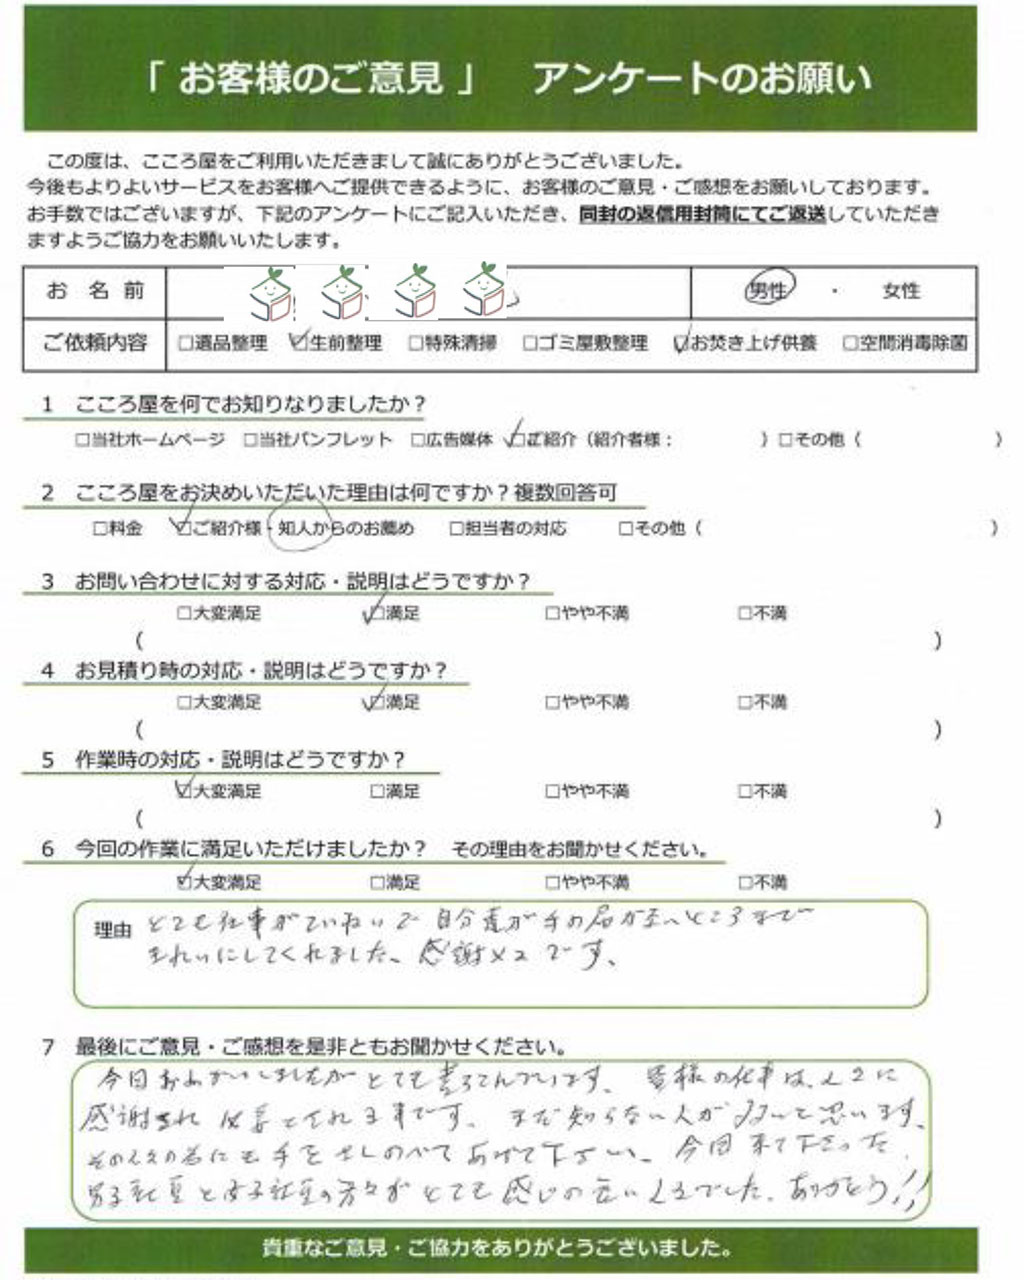 「 お客様のご意見 」 アンケートのお願い
この度は、こころ屋をご利用いただきまして誠にありがとうございました。
今後もよりよいサービスをお客様へご提供できるように、お客様のご意見・ご感想をお願いしております。
お手数ではございますが、下記のアンケートにご記入いただき、同封の返信用封筒にてご返送していただき
ますようご協力をお願いいたします。
お 名 前 男性 ・ 女性
ご依頼内容 □遺品整理 ☑生前整理 □特殊清掃 □ゴミ屋敷整理 ☑お焚き上げ供養 □空間消毒除菌
1 こころ屋を何でお知りなりましたか？
□当社ホームページ □当社パンフレット □広告媒体 ☑ご紹介（紹介者様： ）□その他（ ）
2 こころ屋をお決めいただいた理由は何ですか？複数回答可
□料金 ☑ご紹介様・知人からのお薦め □担当者の対応 □その他（ ）
3 お問い合わせに対する対応・説明はどうですか？
□大変満足 ☑満足 □やや不満 □不満
（ ）
4 お見積り時の対応・説明はどうですか？
□大変満足 ☑満足 □やや不満 □不満
（ ）
5 作業時の対応・説明はどうですか？
☑大変満足 □満足 □やや不満 □不満
（ ）
6 今回の作業に満足いただけましたか？ その理由をお聞かせください。
☑大変満足 □満足 □やや不満 □不満
理由 とても仕事がていねいで 自分達が手の届かないところまで
きれいにしてくれました、感謝々々です。
7 最後にご意見・ご感想を是非ともお聞かせください。
今回おねがいしましたがとても 皆様の仕事は、人々に
感謝され される事です。まだ知らない人が多いと思います。
その人々の為にも手をさしのべてあげて下さい、今回来て下さった、
男子社員と女子社員の方々がとても感じの良い人達でした、ありがとう!!
貴重なご意見・ご協力をありがとうございました。